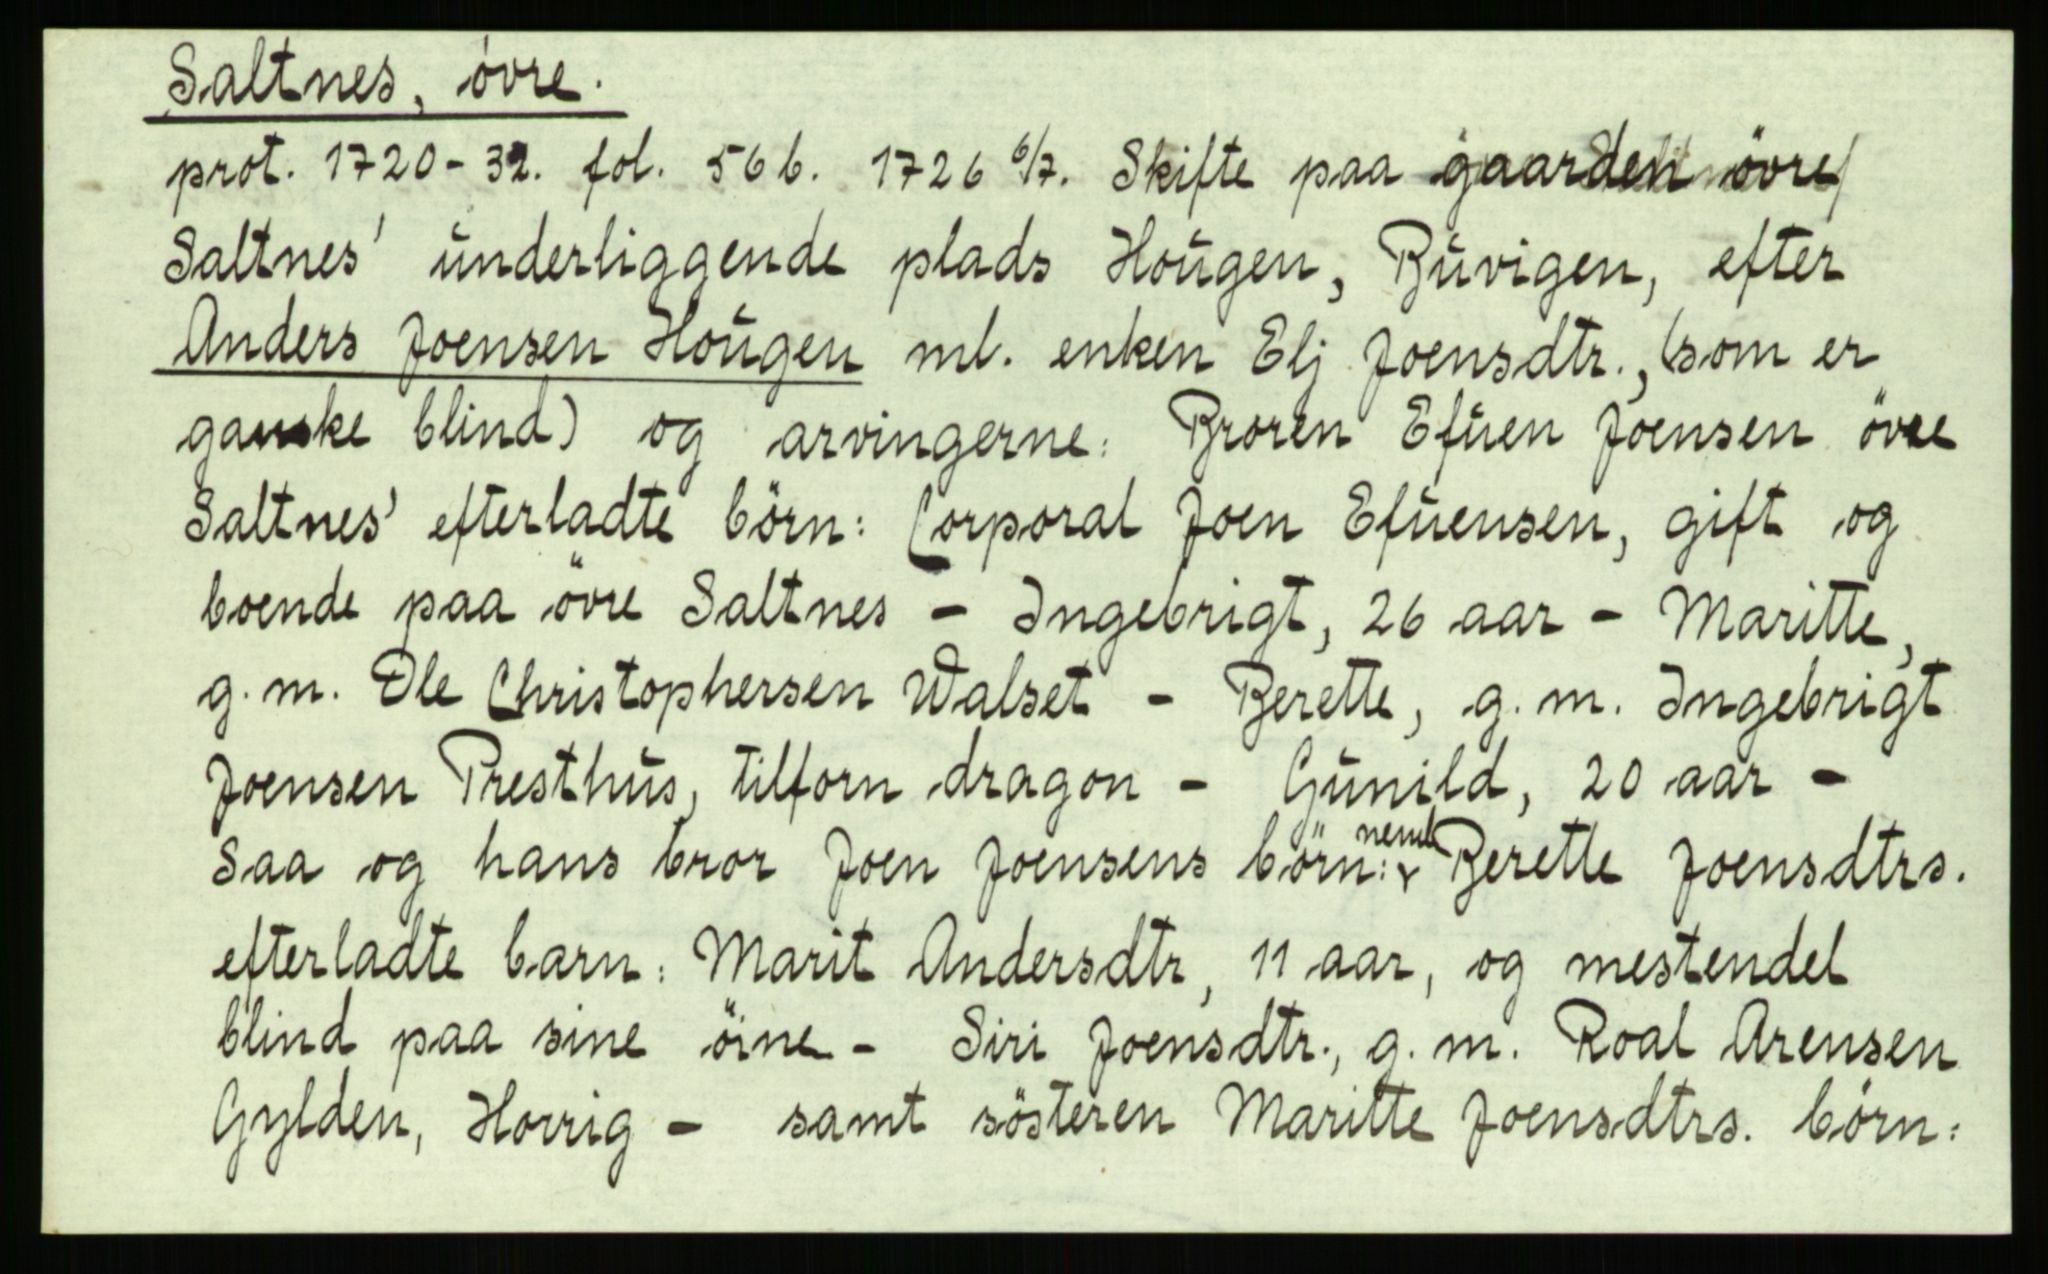 Saltnes, övre.
prot. 1720-32. fol. 56 b. 1726 6/7. Skifte paa gaarden övre
Saltnes' underliggende plads Hougen, Buvigen, efter
Anders Joensen Hougen ml. enken Elj Joensdtr., (som er
ganske blind) og arvingerne: Broren Efuen Joensen övre
Saltnes' efterladte börn: Corporal Joen Efuensen, gift og
boende paa övre Saltnes - Ingebrigt, 26 aar - Maritte,
g. m. Ole Christophersen Walset - Berette, g. m. Ingebrigt
Joensen Presthus, tilforn dragon - Gunild, 20 aar -
Saa og hans bror Joen Joensens börn: neml Berette Joensdtrs.
efterladte barn: Marit Andersdtr, 11 aar, og mestendel
blind paa sine öine - Siri Joensdtr., g. m. Roal Arensen
Gylden, Horrig - samt sösteren Maritte Joensdtrs. börn: